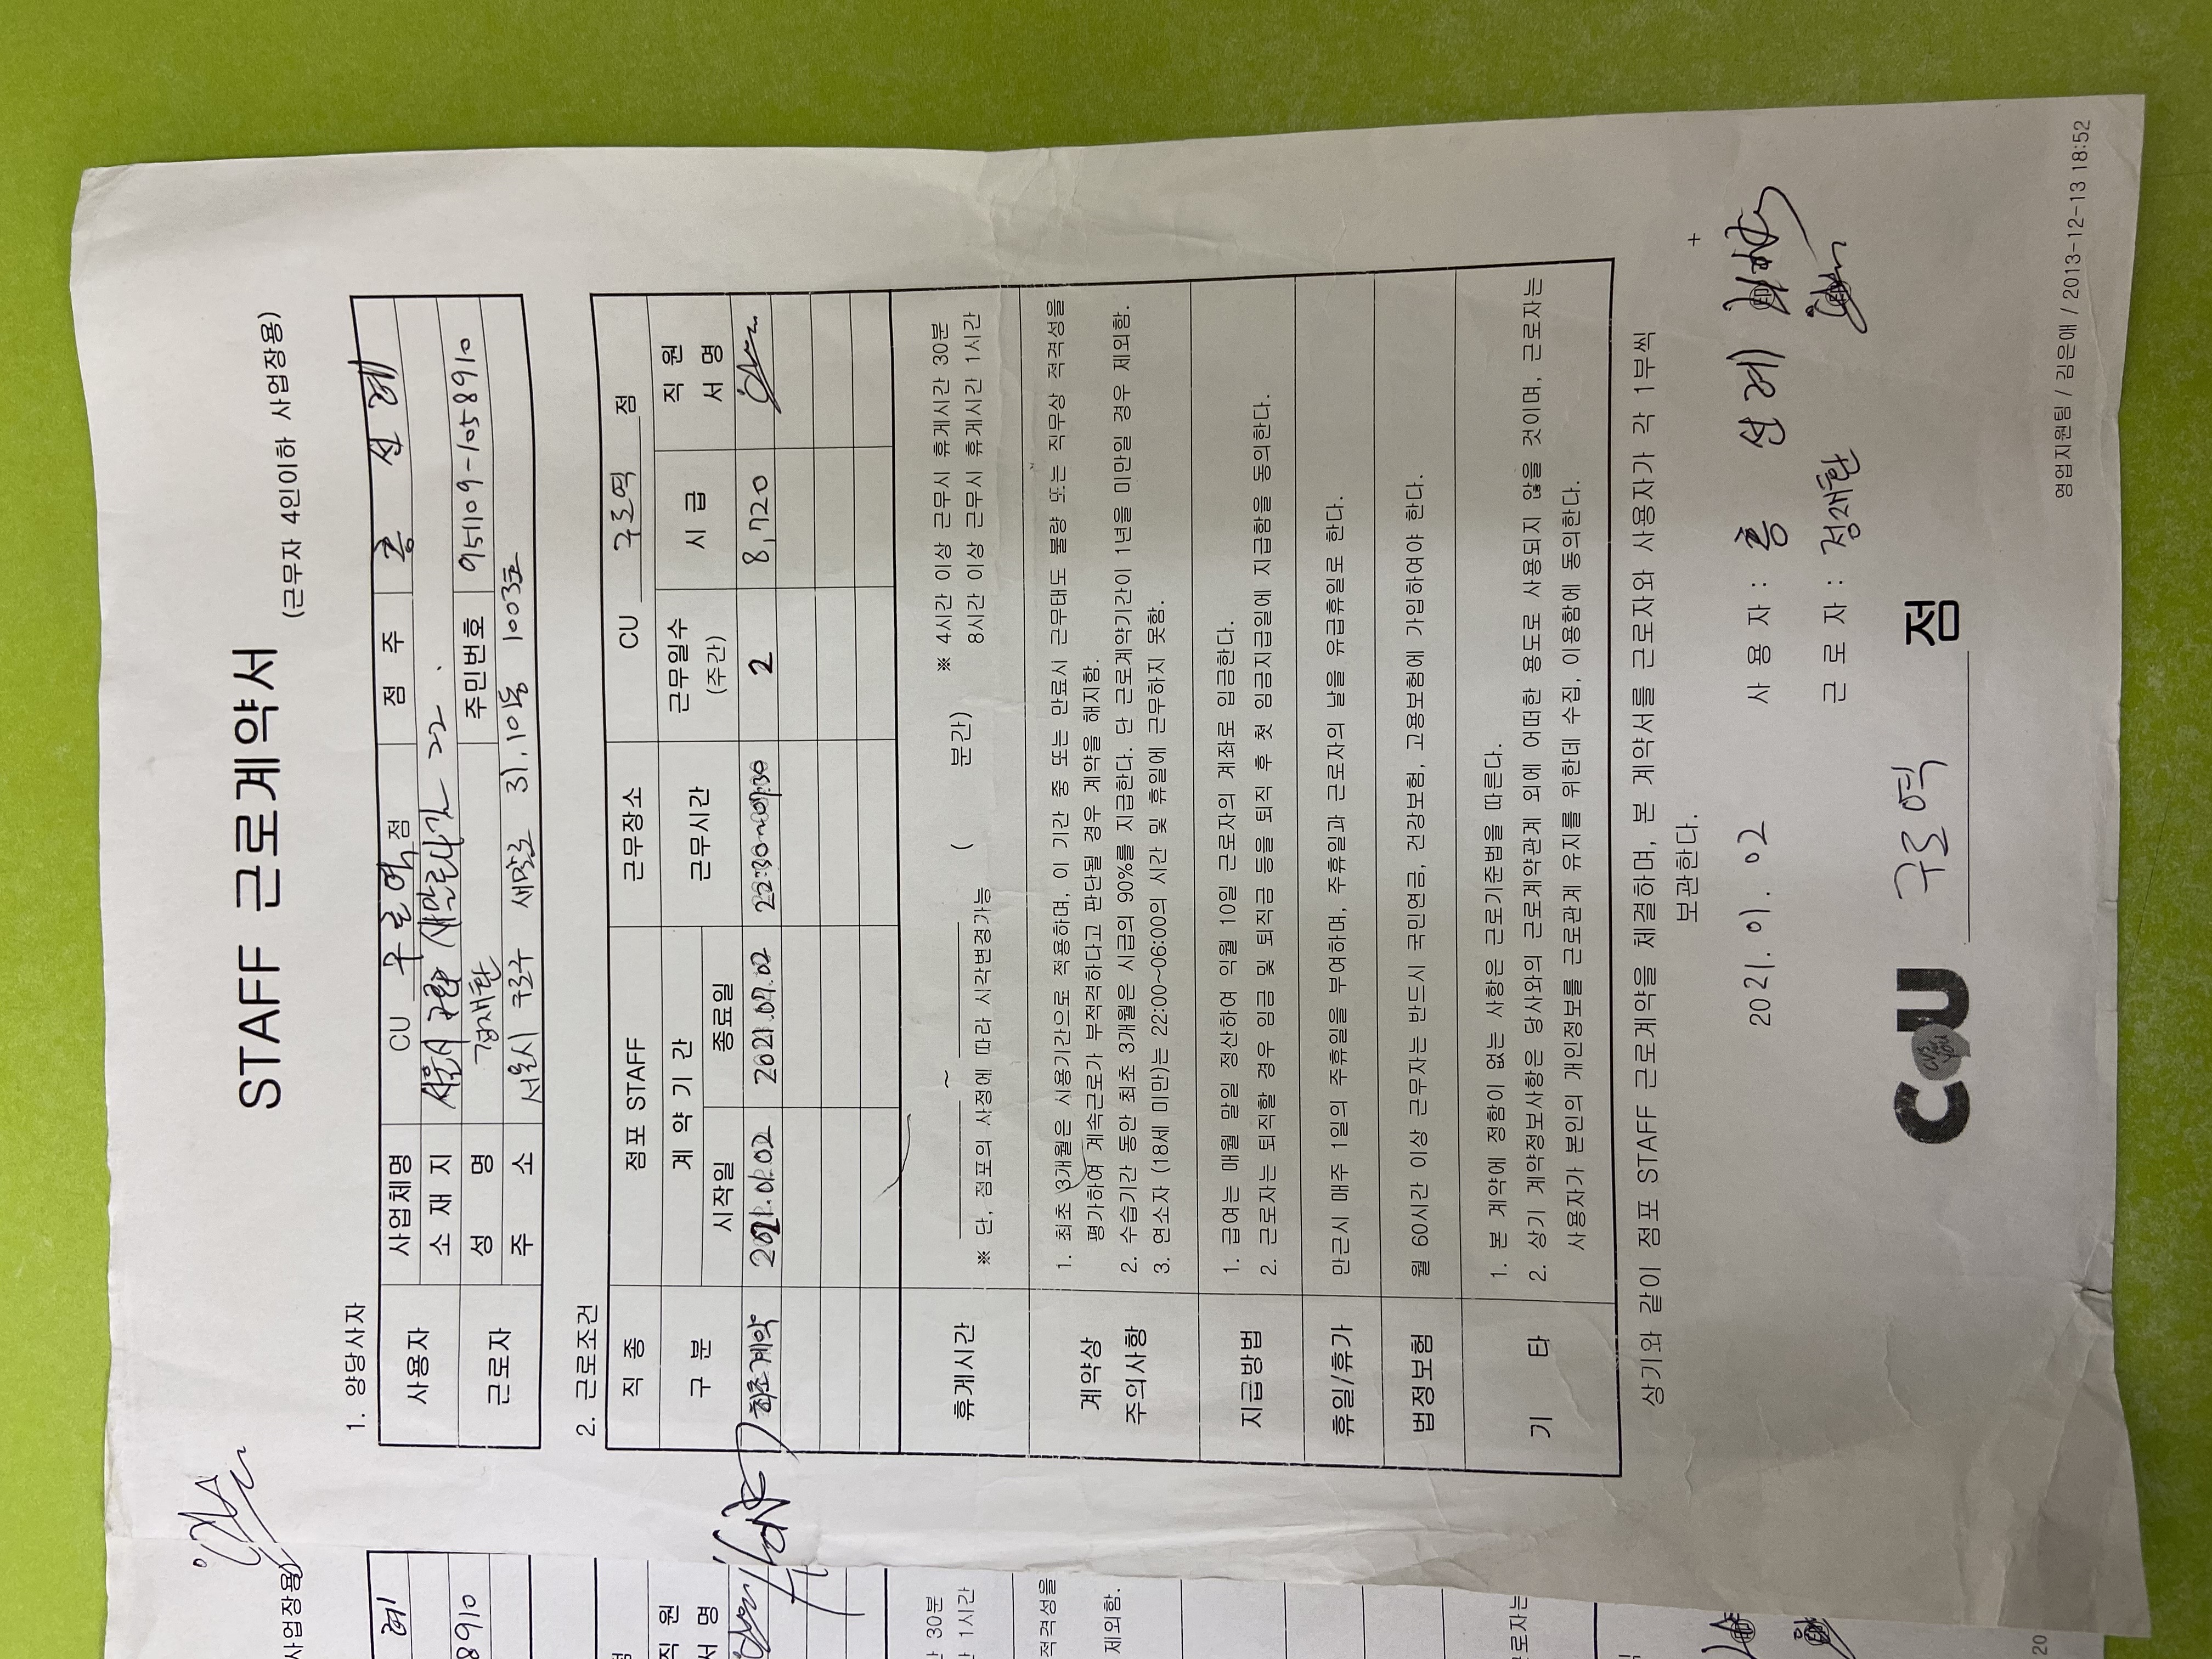 사업장용)
례
8910
점
직 원
서 명
간 30분
간 1시간
적격성을
제외함.
근로자는
20
STAFF 근로계약서
(근무자 4인이하 사업장용)
1. 양당사자
사용자 사업체명 CU 구로역 점 점 주 홍 선 례
소 재 지 서울시 구로구 새말로 길 22
근로자 성 명 정재환 주민번호 951109-1058910
주 소 서울시 구로구 새말로 31, 101동 1003호
2. 근로조건
직 종 점포 STAFF 근무장소 CU 구로역 점
구 분 계 약 기 간 근무시간 근무일수 (주간) 시 급 직 원 서 명
시작일 종료일
최초계약 2021.01.02 2021.07.02 22:30~07:30 2 8,720
휴게시간 ~ ( 분간) ※ 4시간 이상 근무시 휴게시간 30분
※ 단, 점포의 사정에 따라 시각변경가능 8시간 이상 근무시 휴게시간 1시간
계약상 주의사항
1. 최초 3개월은 시용기간으로 적용하며, 이 기간 중 또는 만료시 근무태도 불량 또는 직무상 적격성을
평가하여 계속근로가 부적격하다고 판단될 경우 계약을 해지함.
2. 수습기간 동안 최초 3개월은 시급의 90%를 지급한다. 단 근로계약기간이 1년을 미만일 경우 제외함.
3. 연소자 (18세 미만)는 22:00~06:00의 시간 및 휴일에 근무하지 못함.
지급방법
1. 급여는 매월 말일 정산하여 익월 10일 근로자의 계좌로 입금한다.
2. 근로자는 퇴직할 경우 임금 및 퇴직금 등을 퇴직 후 첫 임금지급일에 지급함을 동의한다.
휴일/휴가 만근시 매주 1일의 주휴일을 부여하며, 주휴일과 근로자의 날을 유급휴일로 한다.
법정보험 월 60시간 이상 근무자는 반드시 국민연금, 건강보험, 고용보험에 가입하여야 한다.
기 타
1. 본 계약에 정함이 없는 사항은 근로기준법을 따른다.
2. 상기 계약정보사항은 당사와의 근로계약관계 외에 어떠한 용도로 사용되지 않을 것이며, 근로자는
사용자가 본인의 개인정보를 근로관계 유지를 위한데 수집, 이용함에 동의한다.
상기와 같이 점포 STAFF 근로계약을 체결하며, 본 계약서를 근로자와 사용자가 각 1부씩
보관한다.
2021. 01. 02 사 용 자 : 홍 선 례 印
근 로 자 : 정재환
CU CVS for YOU 구로역 점
영업지원팀 / 김은애 / 2013-12-13 18:52